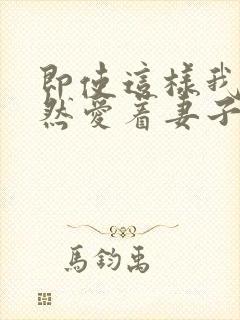 即使這樣我
然愛着妻子
馬鈞禹